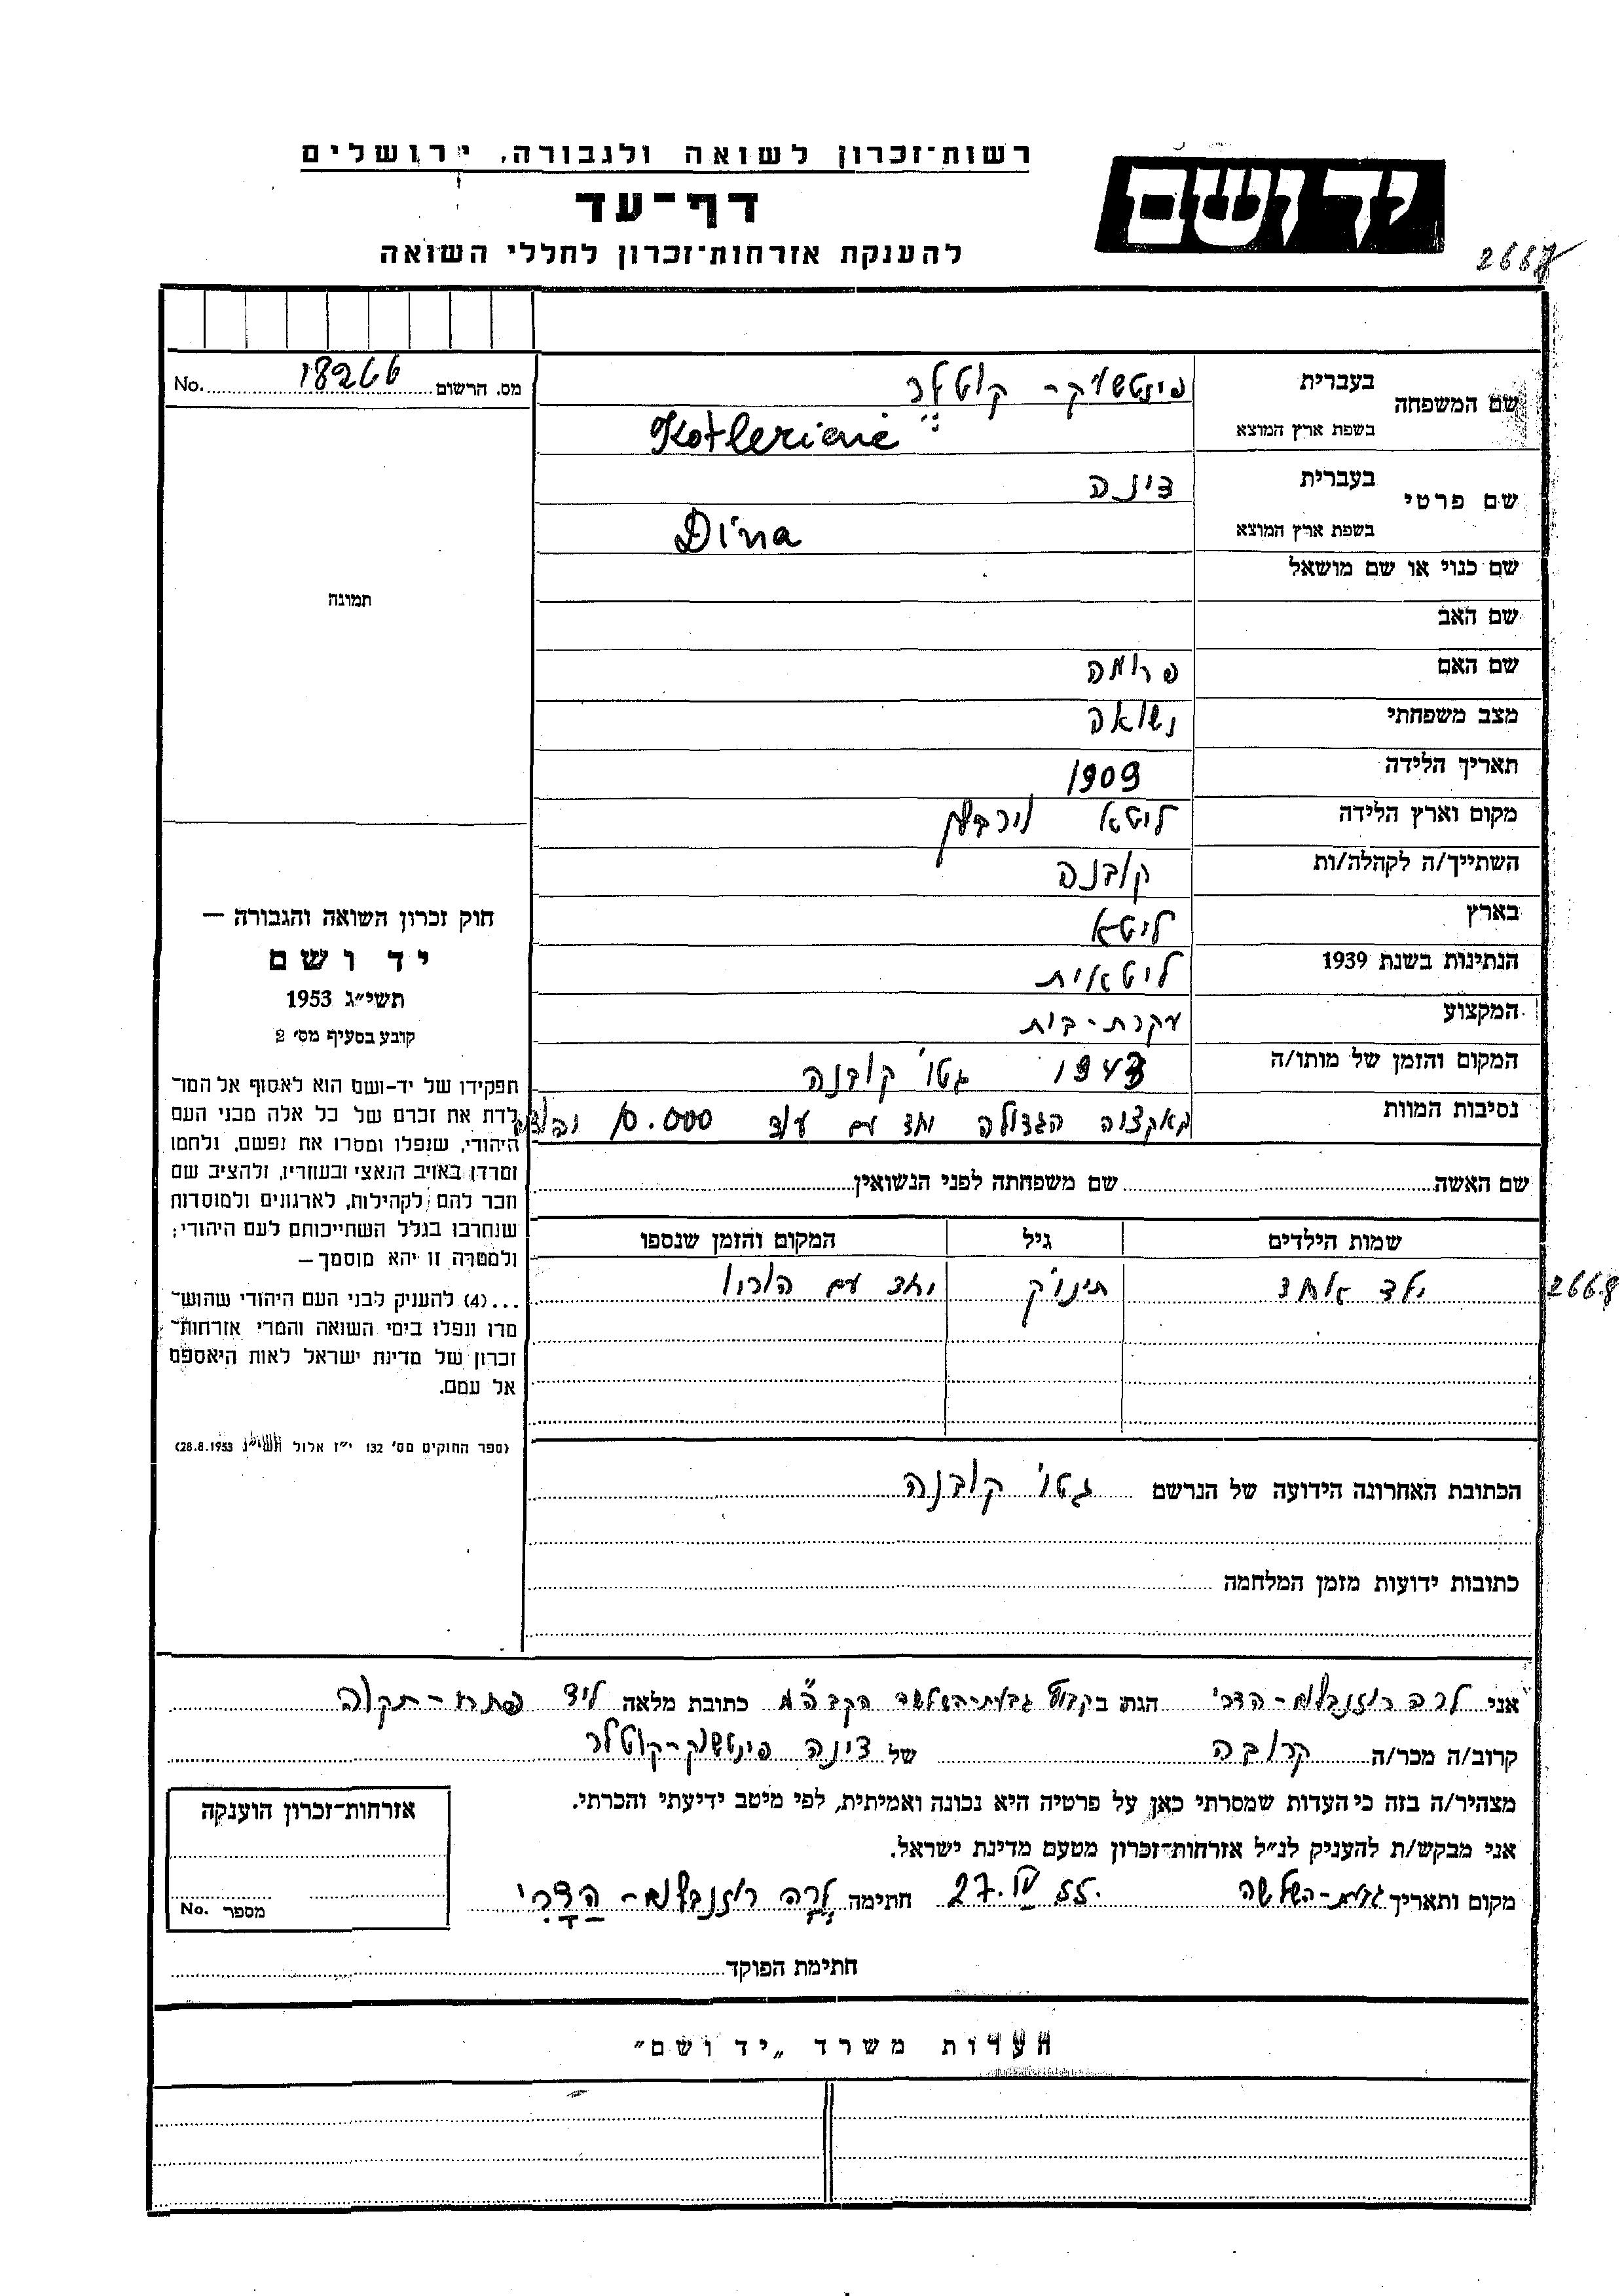 רשות־זכרון לשואה ולגבורה, ירושלים
יד ושם
דף־עד
להענקת אזרחות־זכרון לחללי השואה
2668
מס. הרשום 18266 No.
שם המשפחה
בעברית פינטשוק - קוטלר
בשפת ארץ המוצא Kotlerienė
שם פרטי
בעברית דינה
בשפת ארץ המוצא Dina
שם כנוי או שם מושאל
תמונה
שם האב
שם האם פרומה
מצב משפחתי נשואה
תאריך הלידה 1909
מקום וארץ הלידה ליטא וירבלן
השתייך/ה לקהלה/ות קובנה
בארץ ליטא
הנתינות בשנת 1939 ליטאית
המקצוע עקרת-בית
המקום והזמן של מותו/ה 1943 גטו קובנה
נסיבות המוות באקציה הגדולה יחד עם עוד 10.000
שם האשה שם משפחתה לפני הנשואין
שמות הילדים גיל המקום והזמן שנספו
ילד אחד תינוק יחד עם הוריו
2668
הכתובת האחרונה הידועה של הנרשם גטו קובנה
כתובות ידועות מזמן המלחמה
חוק זכרון השואה והגבורה —
יד ושם
תשי״ג 1953
קובע בסעיף מס׳ 2
תפקידו של יד-ושם הוא לאסוף אל המו־
לדת את זכרם של כל אלה מבני העם
היהודי, שנפלו ומסרו את נפשם, נלחמו
ומרדו באויב הנאצי ובעוזריו, ולהציב שם
וזכר להם לקהילות, לארגונים ולמוסדות
שנחרבו בגלל השתייכותם לעם היהודי;
ולמטרה זו יהא מוסמך—
...(4) להעניק לבני העם היהודי שהוש־
מדו ונפלו בימי השואה והמרי אזרחות־
זכרון של מדינת ישראל לאות היאספם
אל עמם.
(ספר החוקים מס׳ 132 י״ז אלול תשי״ג 28.8.1953)
אני לרה רוזנבלום - הדרי הגתי בקבוץ גבעת-השלשה הקבה״מ כתובת מלאה ליד פתח-תקוה
קרוב/ה מכר/ה קרובה של דינה פינטשוק-קוטלר
מצהיר/ה בזה כי העדות שמסרתי כאן על פרטיה היא נכונה ואמיתית, לפי מיטב ידיעתי והכרתי.
אני מבקש/ת להעניק לנ״ל אזרחות־זכרון מטעם מדינת ישראל.
מקום ותאריך גבעת-השלשה 27.IV 55. חתימה לרה רוזנבלום - הדרי
אזרחות־זכרון הוענקה
מספר No.
חתימת הפוקד
העדות משרד „יד ושם״